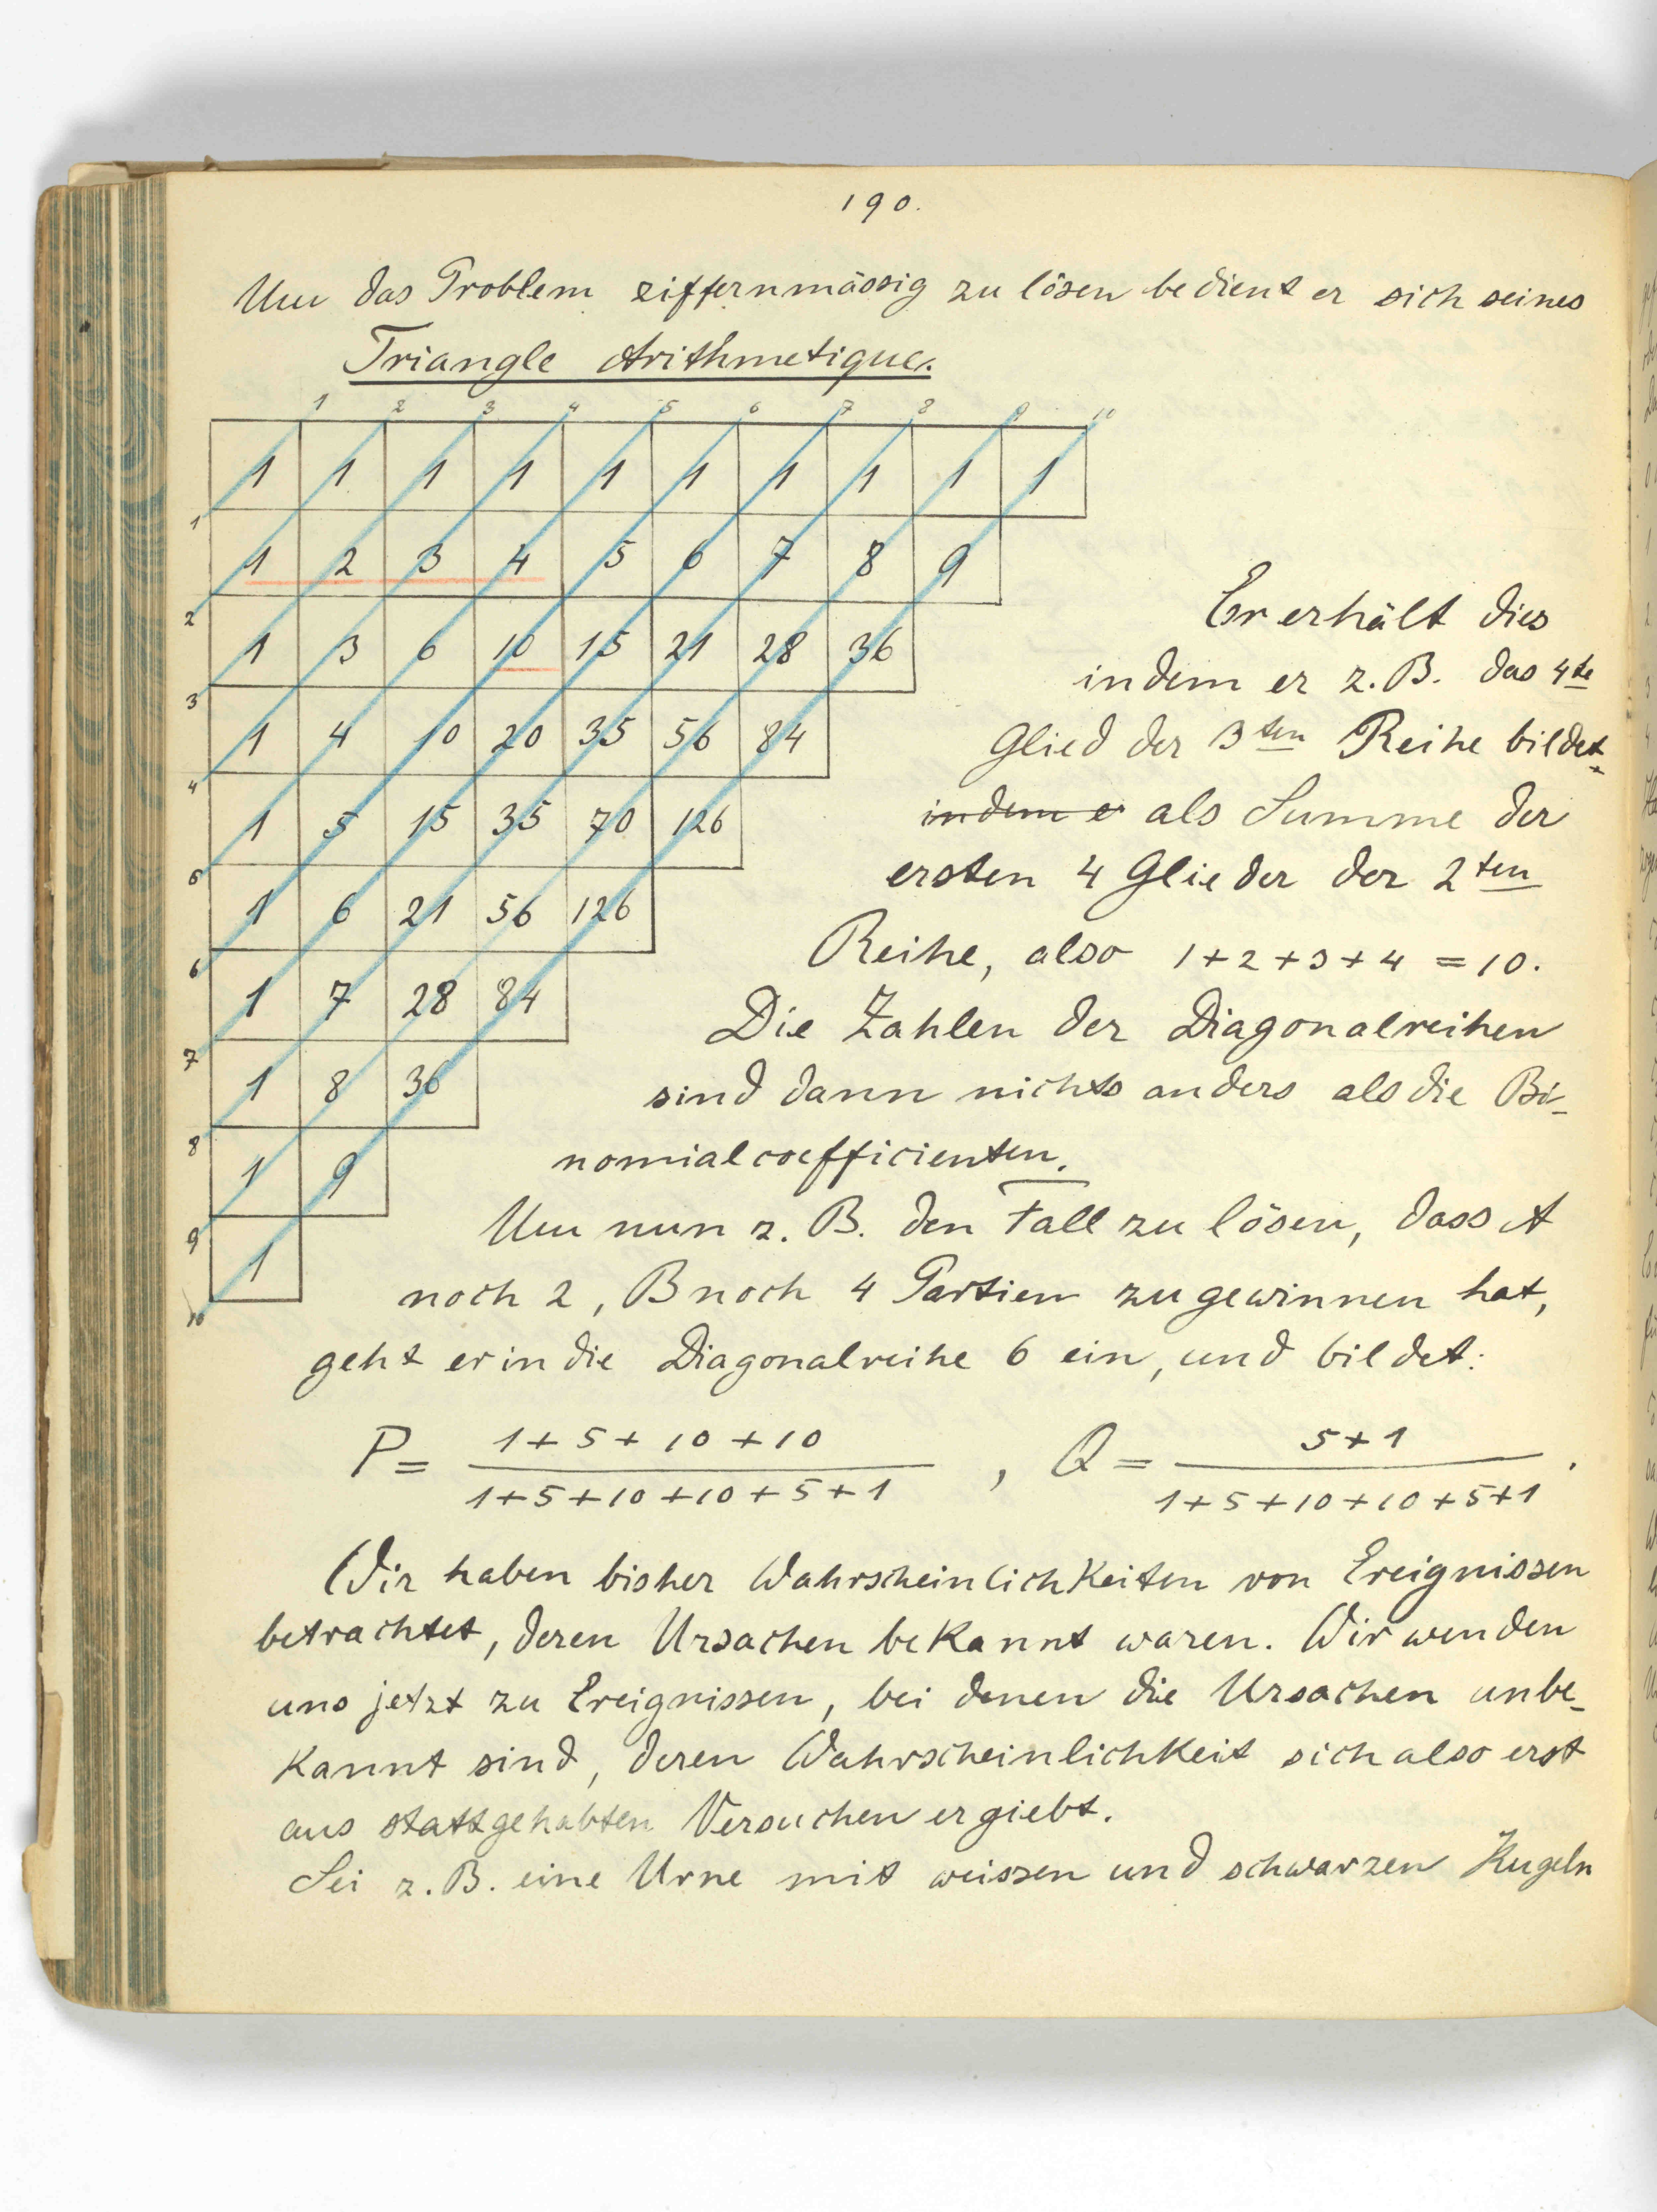 190.
Um das Problem ziffernmässig zu lösen bedient er sich seines
Triangle Arithmetique.
1 2 3 4 5 6 7 8 9 10
1 1 1 1 1 1 1 1 1 1
1
1 2 3 4 5 6 7 8 9
2
1 3 6 10 15 21 28 36
3
1 4 10 20 35 56 84
4
1 5 15 35 70 126
5
1 6 21 56 126
6
1 7 28 84
7
1 8 36
8
1 9
9
1
10
Er erhält dies
indem er z.B. das 4te
Glied der 3ten Reihe bildet
indem er als Summe der
ersten 4 Glieder der 2ten
Reihe, also 1+2+3+4 = 10.
Die Zahlen der Diagonalreihen
sind dann nichts anders als die Bi-
nomialcoefficienten.
Um nun z. B. den Fall zu lösen, dass A
noch 2, B noch 4 Partien zu gewinnen hat,
geht er in die Diagonalreihe 6 ein, und bildet:
P = (1+5+10+10)/(1+5+10+10+5+1) , Q = (5+1)/(1+5+10+10+5+1) .
Wir haben bisher Wahrscheinlichkeiten von Ereignissen
betrachtet, deren Ursachen bekannt waren. Wir wenden
uns jetzt zu Ereignissen, bei denen die Ursachen unbe-
kannt sind, deren Wahrscheinlichkeit sich also erst
aus stattgehabten Versuchen ergiebt.
Sei z.B. eine Urne mit weissen und schwarzen Kugeln